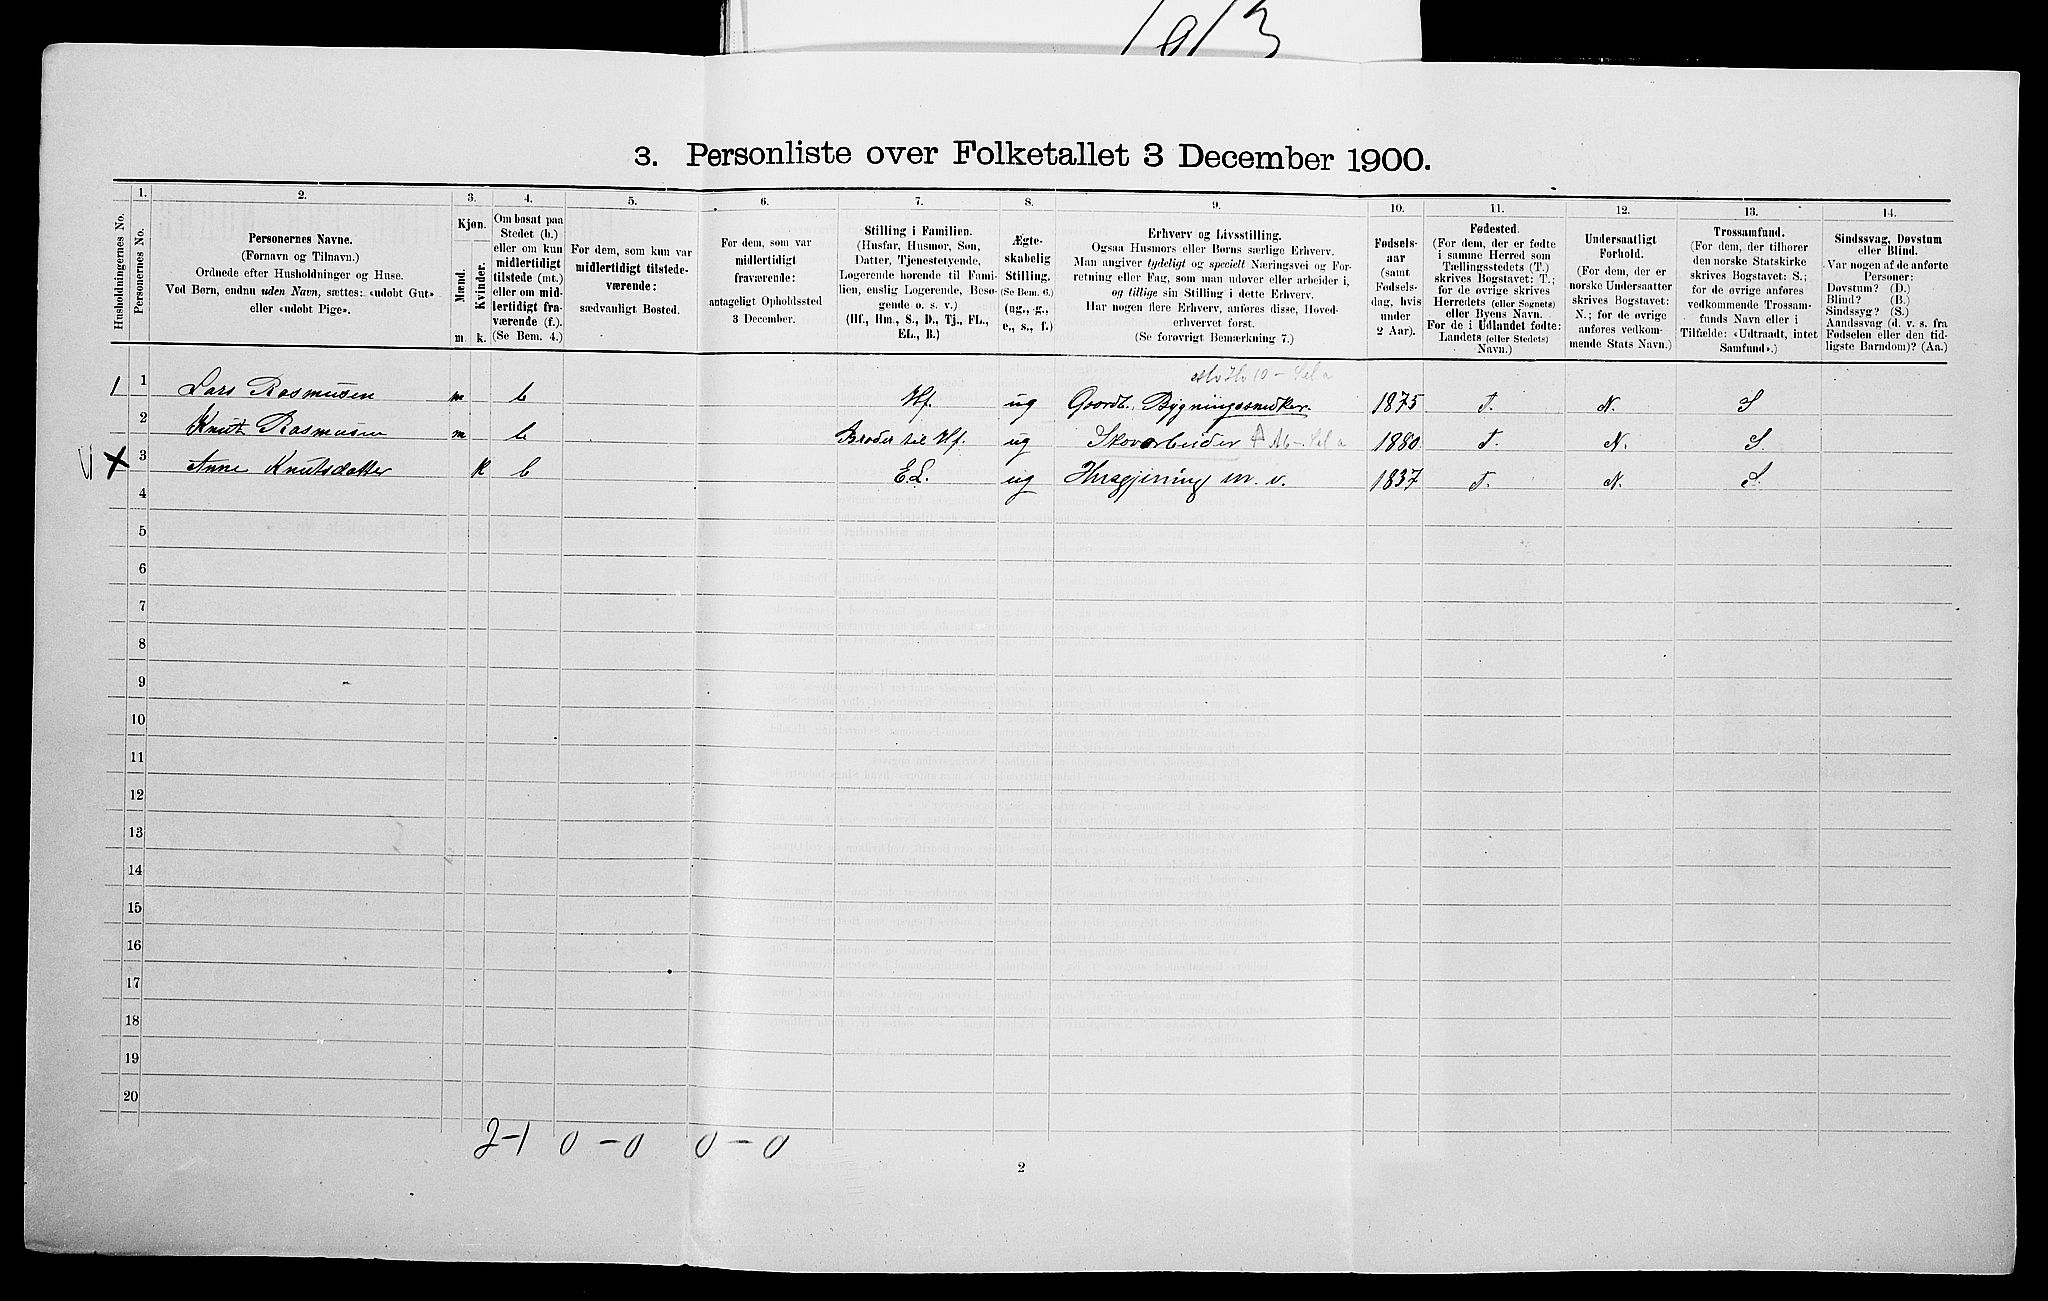 1913
3. Personliste over Folketallet 3 December 1900.
Husholdningernes No.
1.
Personernes No.
2.
Personernes Navne.
(Fornavn og Tilnavn.)
Ordnede efter Husholdninger og Huse.
Ved Børn, endnu uden Navn, sættes: «udøbt Gut»
eller «udøbt Pige».
3.
Kjøn.
Mænd.
Kvinder.
m. k.
4.
Om bosat paa
Stedet (b.)
eller om kun
midlertidigt
tilstede (mt.)
eller om mid-
lertidigt fra-
værende (f.).
(Se Bem. 4.)
5.
For dem, som kun var
midlertidigt tilstede-
værende:
sædvanligt Bosted.
6.
For dem, som var
midlertidigt
fraværende:
antageligt Opholdssted
3 December.
7.
Stilling i Familien.
(Husfar, Husmor, Søn,
Datter, Tjenestetyende,
Logerende hørende til Fami-
lien, enslig Logerende, Besø-
gende o. s. v.)
(Hf., Hm., S., D., Tj., FL.,
EL., B.)
8.
Ægte-
skabelig
Stilling.
(Se Bem. 6.)
(ug., g.,
e., s., f.)
9.
Erhverv og Livsstilling.
Ogsaa Husmors eller Børns særlige Erhverv.
Man angiver tydeligt og specielt Næringsvei og For-
retning eller Fag, som man udøver eller arbeider i,
og tillige sin Stilling i dette Erhverv.
Har nogen flere Erhverv, anføres disse, Hoved-
erhvervet først.
(Se forøvrigt Bemærkning 7.)
10.
Fødsels-
aar
(samt
Fødsels-
dag, hvis
under
2 Aar).
11.
Fødested.
(For dem, der er fødte
i samme Herred som
Tællingsstedets (T.)
skrives Bogstavet: T.;
for de øvrige skrives
Herredets (eller Sognets)
eller Byens Navn.
For de i Udlandet fødte:
Landets (eller Stedets)
Navn.)
12.
Undersaatligt
Forhold.
(For dem, der er
norske Undersaatter
skrives Bogstavet:
N.; for de øvrige
anføres vedkom-
mende Stats Navn.)
13.
Trossamfund.
(For dem, der tilhører
den norske Statskirke
skrives Bogstavet: S.;
for de øvrige anføres
vedkommende Trossam-
funds Navn eller i
Tilfælde: «Udtraadt, intet
Samfund».)
14.
Sindssvag, Døvstum
eller Blind.
Var nogen af de anførte
Personer:
Døvstum? (D.)
Blind? (B.)
Sindssyg? (S.)
Aandssvag (d. v. s. fra
Fødselen eller den tid-
ligste Barndom)? (Aa.)
1 1 Lars Rasmusen m b Hf. ug Gaardb., Bygningssnedker. 1875 T. N. S
2 Knut Rasmusen m b Broder til Hf. ug Skovarbeider 1880 T. N. S.
X 3 Anne Knutsdatter k b E.L. ug Husgjerning m. v. 1837 T. N. S.
4
5
6
7
8
9
10
11
12
13
14
15
16
17
18
19
20
2-1 0-0 0-0
2